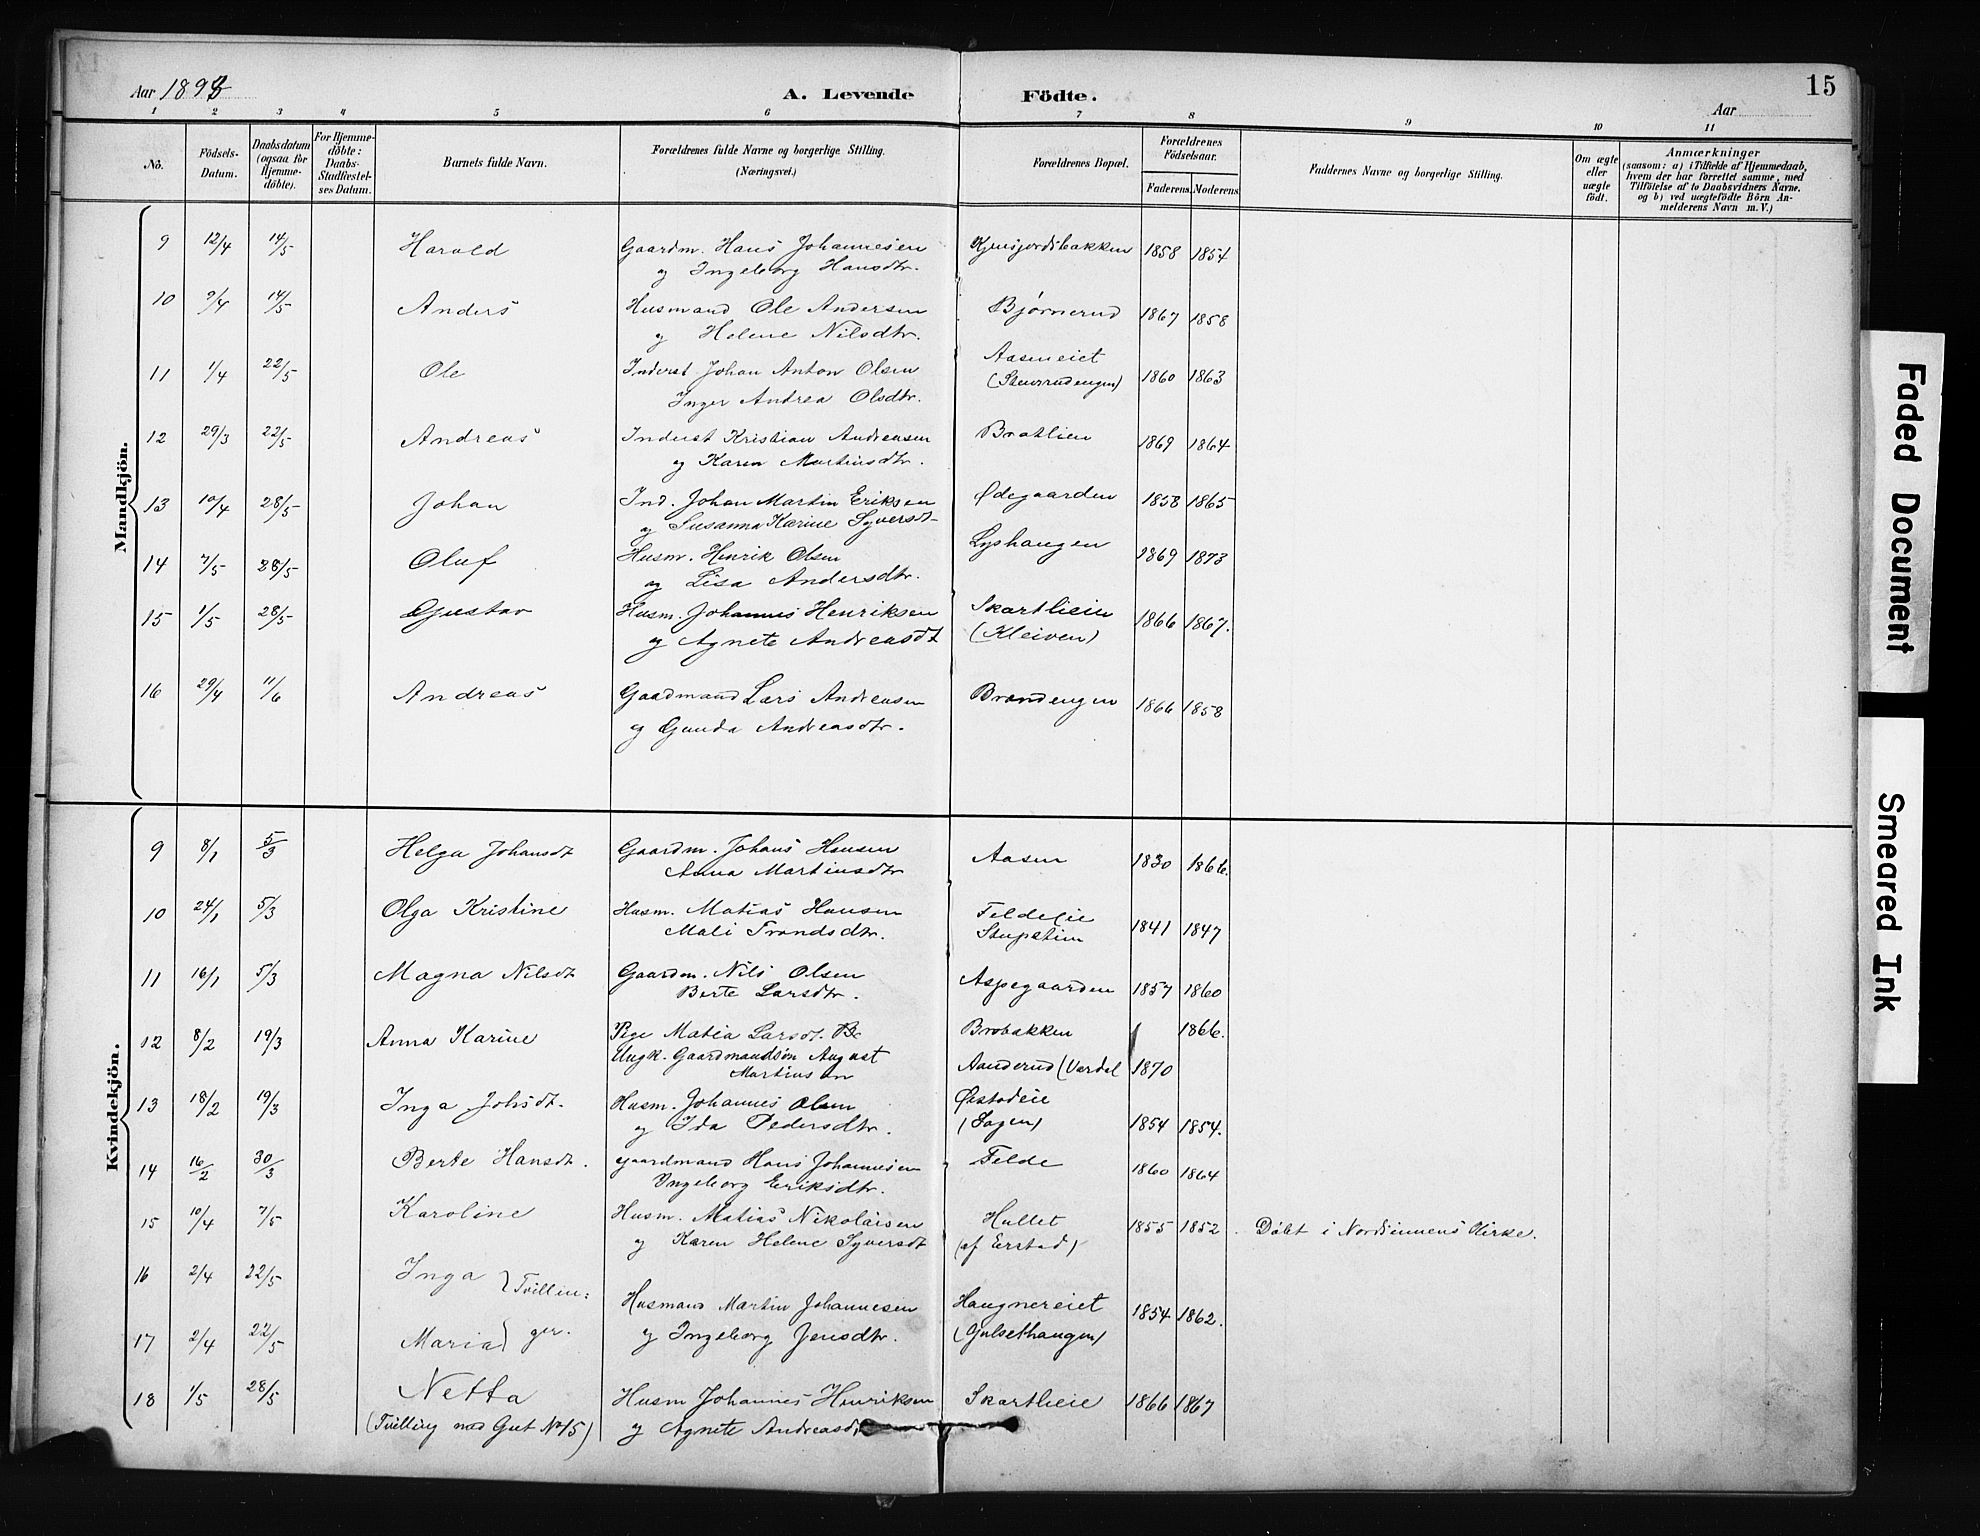 15
Aar 1893
A. Levende Födte.
Aar
1 2 3 4 5 6 7 8 9 10 11
No.
Födsels-Datum.
Daabsdatum (ogsaa for Hjemme-döbte).
For Hjemme-döbte: Daabs-Stadfæstel-ses Datum.
Barnets fulde Navn.
Forældrenes fulde Navne og borgerlige Stilling. (Næringsvei.)
Forældrenes Bopæl.
Forældrenes Födselsaar.
Faderens. Moderens.
Faddernes Navne og borgerlige Stilling.
Om ægte eller uægte födt.
Anmærkninger
(saasom: a) i Tilfælde af Hjemmedaab, hvem der har forrettet samme, med Tilföielse af to Daabsvidners Navne. og b) ved uægtefödte Börn An-melderens Navn m.V.)
Mandkjön.
9 12/4 14/5 Harald Gaardm. Hans Johannesen Kjensjordsbakken 1858 1854
og Ingeborg Hansdtr.
10 9/4 14/5 Anders Husmand Ole Andersen Bjørnerud 1867 1858
og Helene Nilsdtr.
11 1/4 22/5 Ole Inderst Johan Anton Olsen Aaseneiet 1860 1863
Inger Andrea Olsdtr. (Stensrudengen)
12 29/3 22/5 Andreas Inderst Kristian Andreasen Bratlien 1869 1864
og Karen Martinsdtr.
13 10/4 28/5 Johan Ind. Johan Martin Eriksen Ødegaarden 1858 1865
og Susanna Karine Syversdt
14 7/5 28/5 Oluf Husm. Henrik Olsen Lyshaugen 1869 1873
og Lisa Andersdtr.
15 1/5 28/5 Gustav Husm. Johannes Henriksen Skartlieie 1866 1867.
og Agnete Andreasdt (Kleiven)
16 29/4 11/6 Andreas Gaardmand Lars Andreasen Brandengen 1866 1858
og Gunda Andreasdtr.
Kvindekjön.
9 8/1 5/3 Helga Johansdt Gaardm. Johans Hansen Aasen 1830 1866.
Anna Martinsdtr
10 24/1 5/3 Olga Kristine Husm. Matias Hansen Feldeeie 1841 1847
Mali Trondsdtr. Stupstien
11 16/1 5/3 Magna Nilsdt Gaardm. Nils Olsen Aspegaarden 1857 1860
Berte Larsdtr.
12 8/2 19/3 Anna Karine Pige Matia Larsdt. Brobakken 1866.
Ungk. Gaardmandsøn August Martinsen Aanderud (Vardal 1870
13 18/2 19/3 Inga Johsdt. Husm. Johannes Olsen Østadeie
og Ida Pedersdtr. (Hagen) 1854 1854.
14 16/2 30/3 Berte Hansdt. Gaardmand Hans Johannesen Felde 1860 1864
Ingeborg Eriksdtr.
15 10/4 7/5 Karoline Husm. Matias Nikolaisen Hullet 1855 1852 Døbt i Nordsinnens Kirke.
og Karen Helene Syversdt (af Erstad)
16 2/4 22/5 Inga } Tvillin:
Husmand Martin Johannesen Haugnereiet 1854 1862.
17 2/4 22/5 Maria } ger. og Ingeborg Jensdtr. (Gulsethaugen)
18 1/5 28/5 Netta Husm Johannes Henriksen Skartlieie 1866 1867
(Tvilling med Gut No 15) og Agnete Andreasdt
Faded Document
Smeared Ink